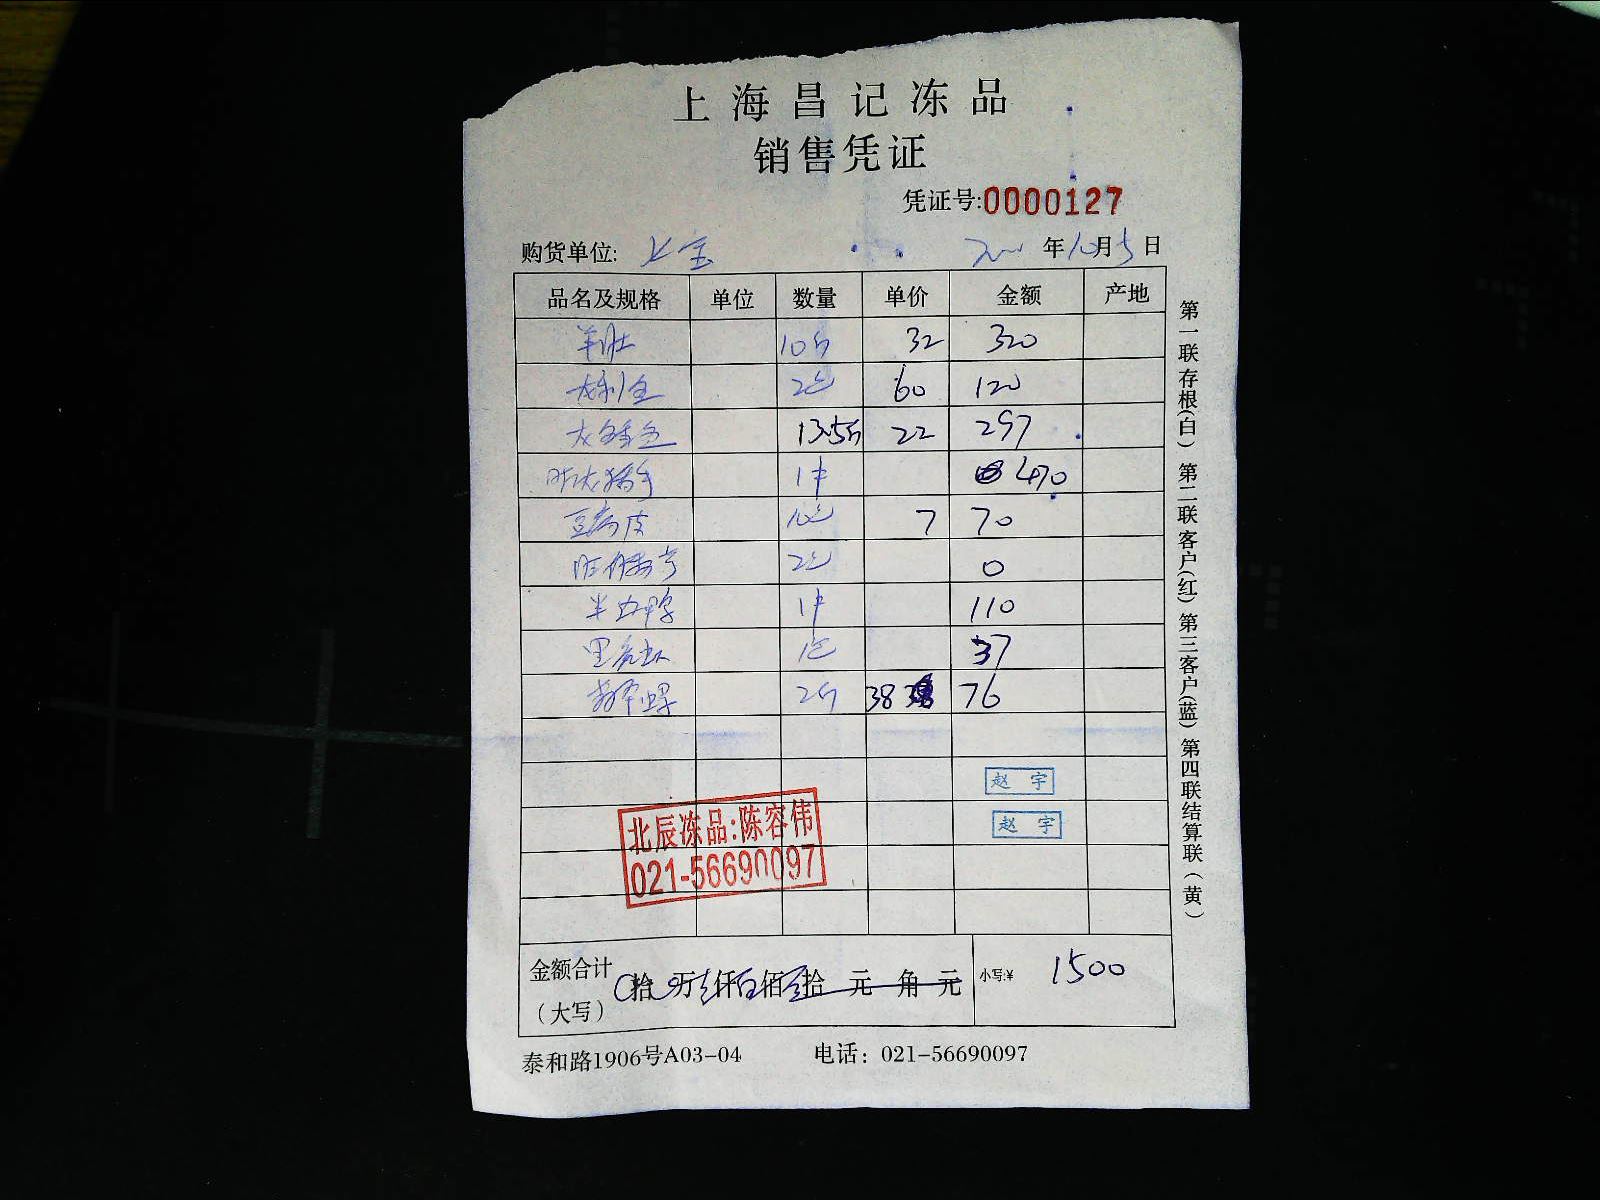 上海昌记冻品
销售凭证
凭证号:0000127
购货单位: 上宝 年10月5日
品名及规格 单位 数量 单价 金额 产地
羊肚 10斤 32 320
龙利鱼 2包 60 120
13.5斤 22 297
1件 470
豆腐皮 10包 7 70
2包 0
半边鸭 1件 110
黑虎虾 1包 37
2斤 38 76
赵宇
赵宇
北辰冻品:陈容伟
021-56690097
金额合计
(大写)
拾 万 仟 佰 拾 元 角 元 小写:¥ 1500
泰和路1906号A03-04 电话: 021-56690097
第一联存根(白) 第二联客户(红) 第三客户(蓝) 第四联结算联(黄)